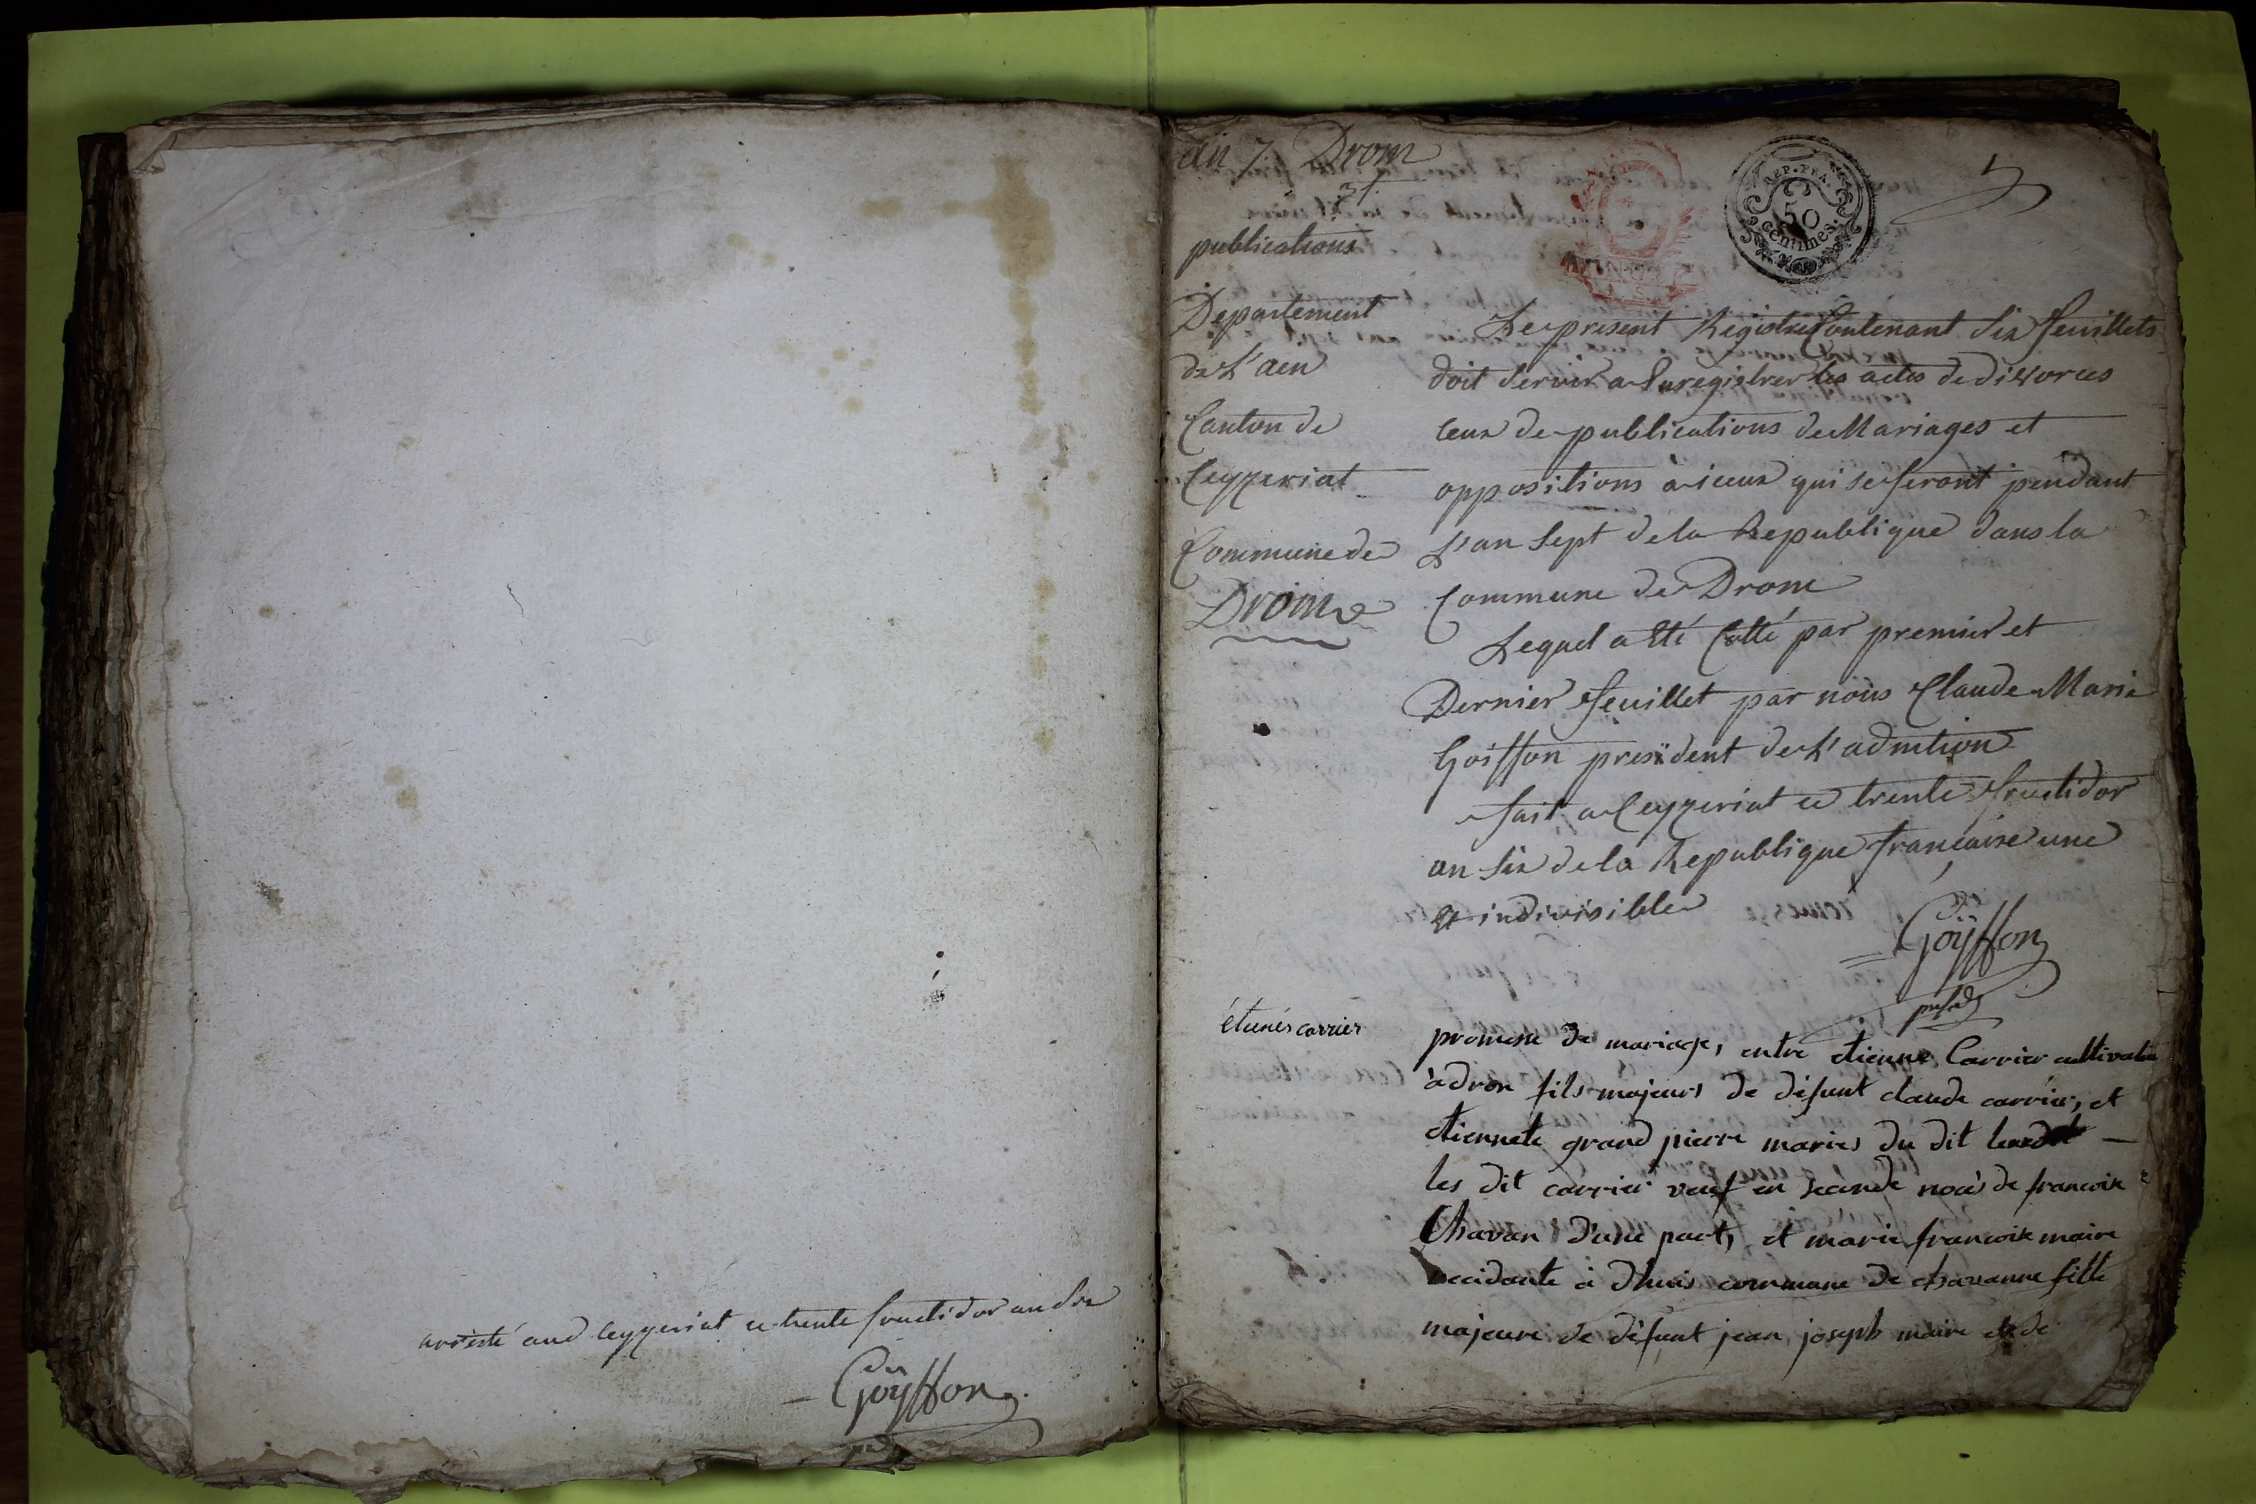 arresté aud Ceyzeriat ce trente fructidor an six
Goÿffon
an 7. Drom
publications
REP. FRA.
50
centimes.
Departement
de L'ain
Canton de
Ceyzeriat
Commune de
Drom
Le present Registre Contenant six feuillets
doit servir a Enregistrer les actes de divorces
ceux de publications de Mariages et
oppositions à iceux qui se feront pendant
L'an sept de la Republique dans la
Commune de Drom
Lequel a Eté Cotté par premier et
Dernier feuillet par nous Claude Marie
Goiffon president de L'admtion
fait a Ceyzeriat ce trente fructidor
an six de la Republique francaise une
et indivisible
Goÿffon
presdt
étienés carrier
promesse de mariage, entre etienne Carrier cultivateur
à dron fils majeurs de défunt claude carrier, et
etiennete grand pierre maries du dit
les dit carrier veuf en seconde nocès de francoise
Chavan d'une part, et marie francoise maire
recidante à dhuis commune de chavanne fille
majeure de défunt jean joseph maire et de